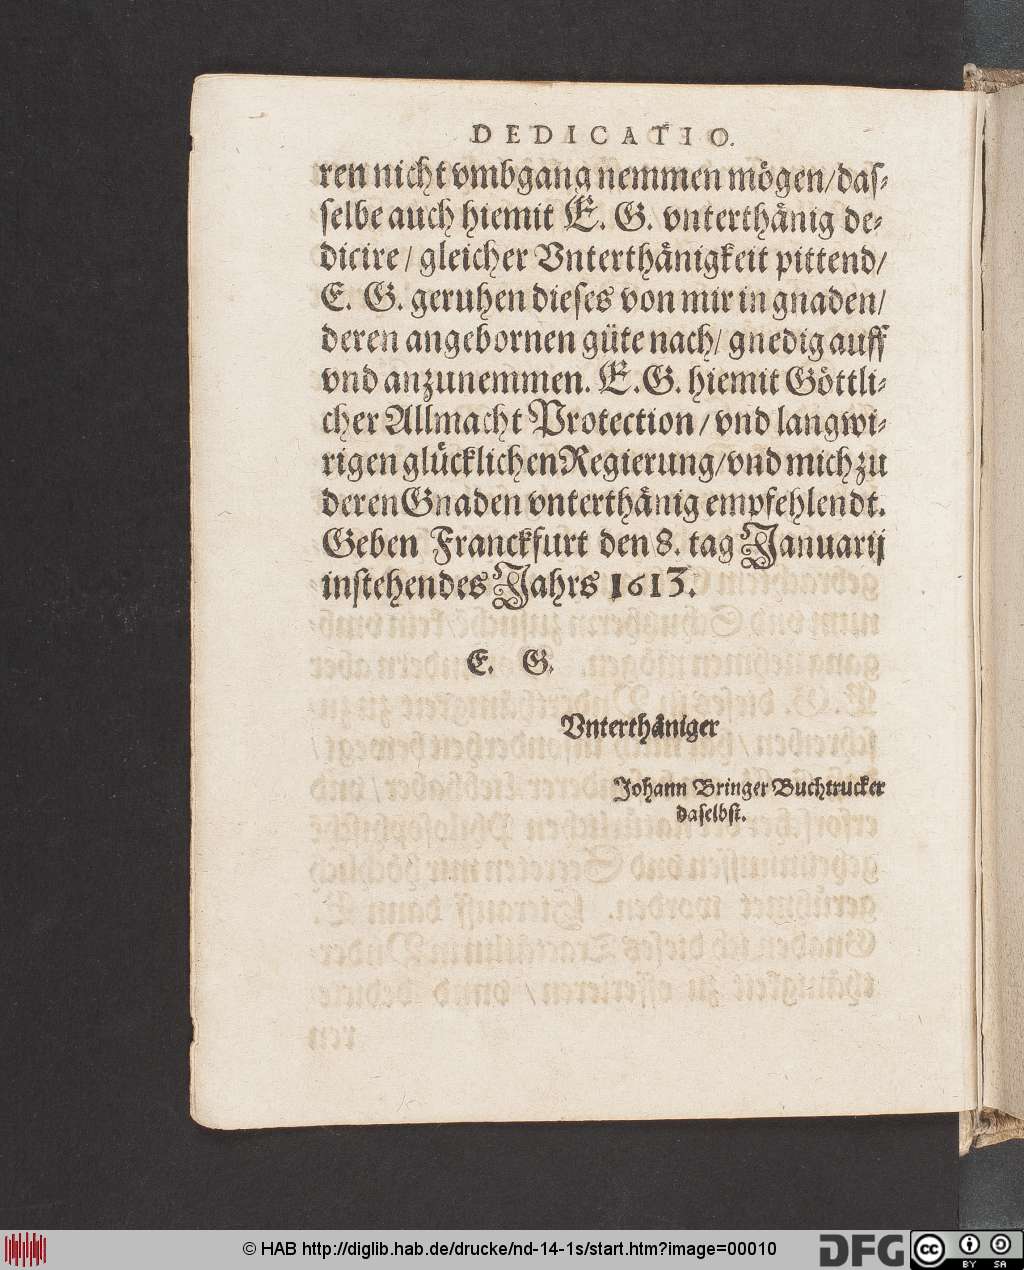 DEDICATIO.
ren nicht vmbgang nemmen mögen/das-
selbe auch hiemit E. G. vnterthånig de-
dicire/ gleicher Vnterthånigkeit pittend/
E. G. geruhen dieses von mir in gnaden/
deren angebornen güte nach/ gnedig auff
vnd anzunemmen. E. G. hiemit Göttli-
cher Allmacht Protection/ vnd langwi-
rigen glücklichen Regierung/vnd mich zu
deren Gnaden vnterthånig empfehlendt.
Geben Franckfurt den 8. tag Januarij
instehendes Jahrs 1613.
E. G.
Vnterthåniger
Johann Bringer Buchtrucker
daselbst.
© HAB http://diglib.hab.de/drucke/nd-14-1s/start.htm?image=00010
DFG
cc
BY SA